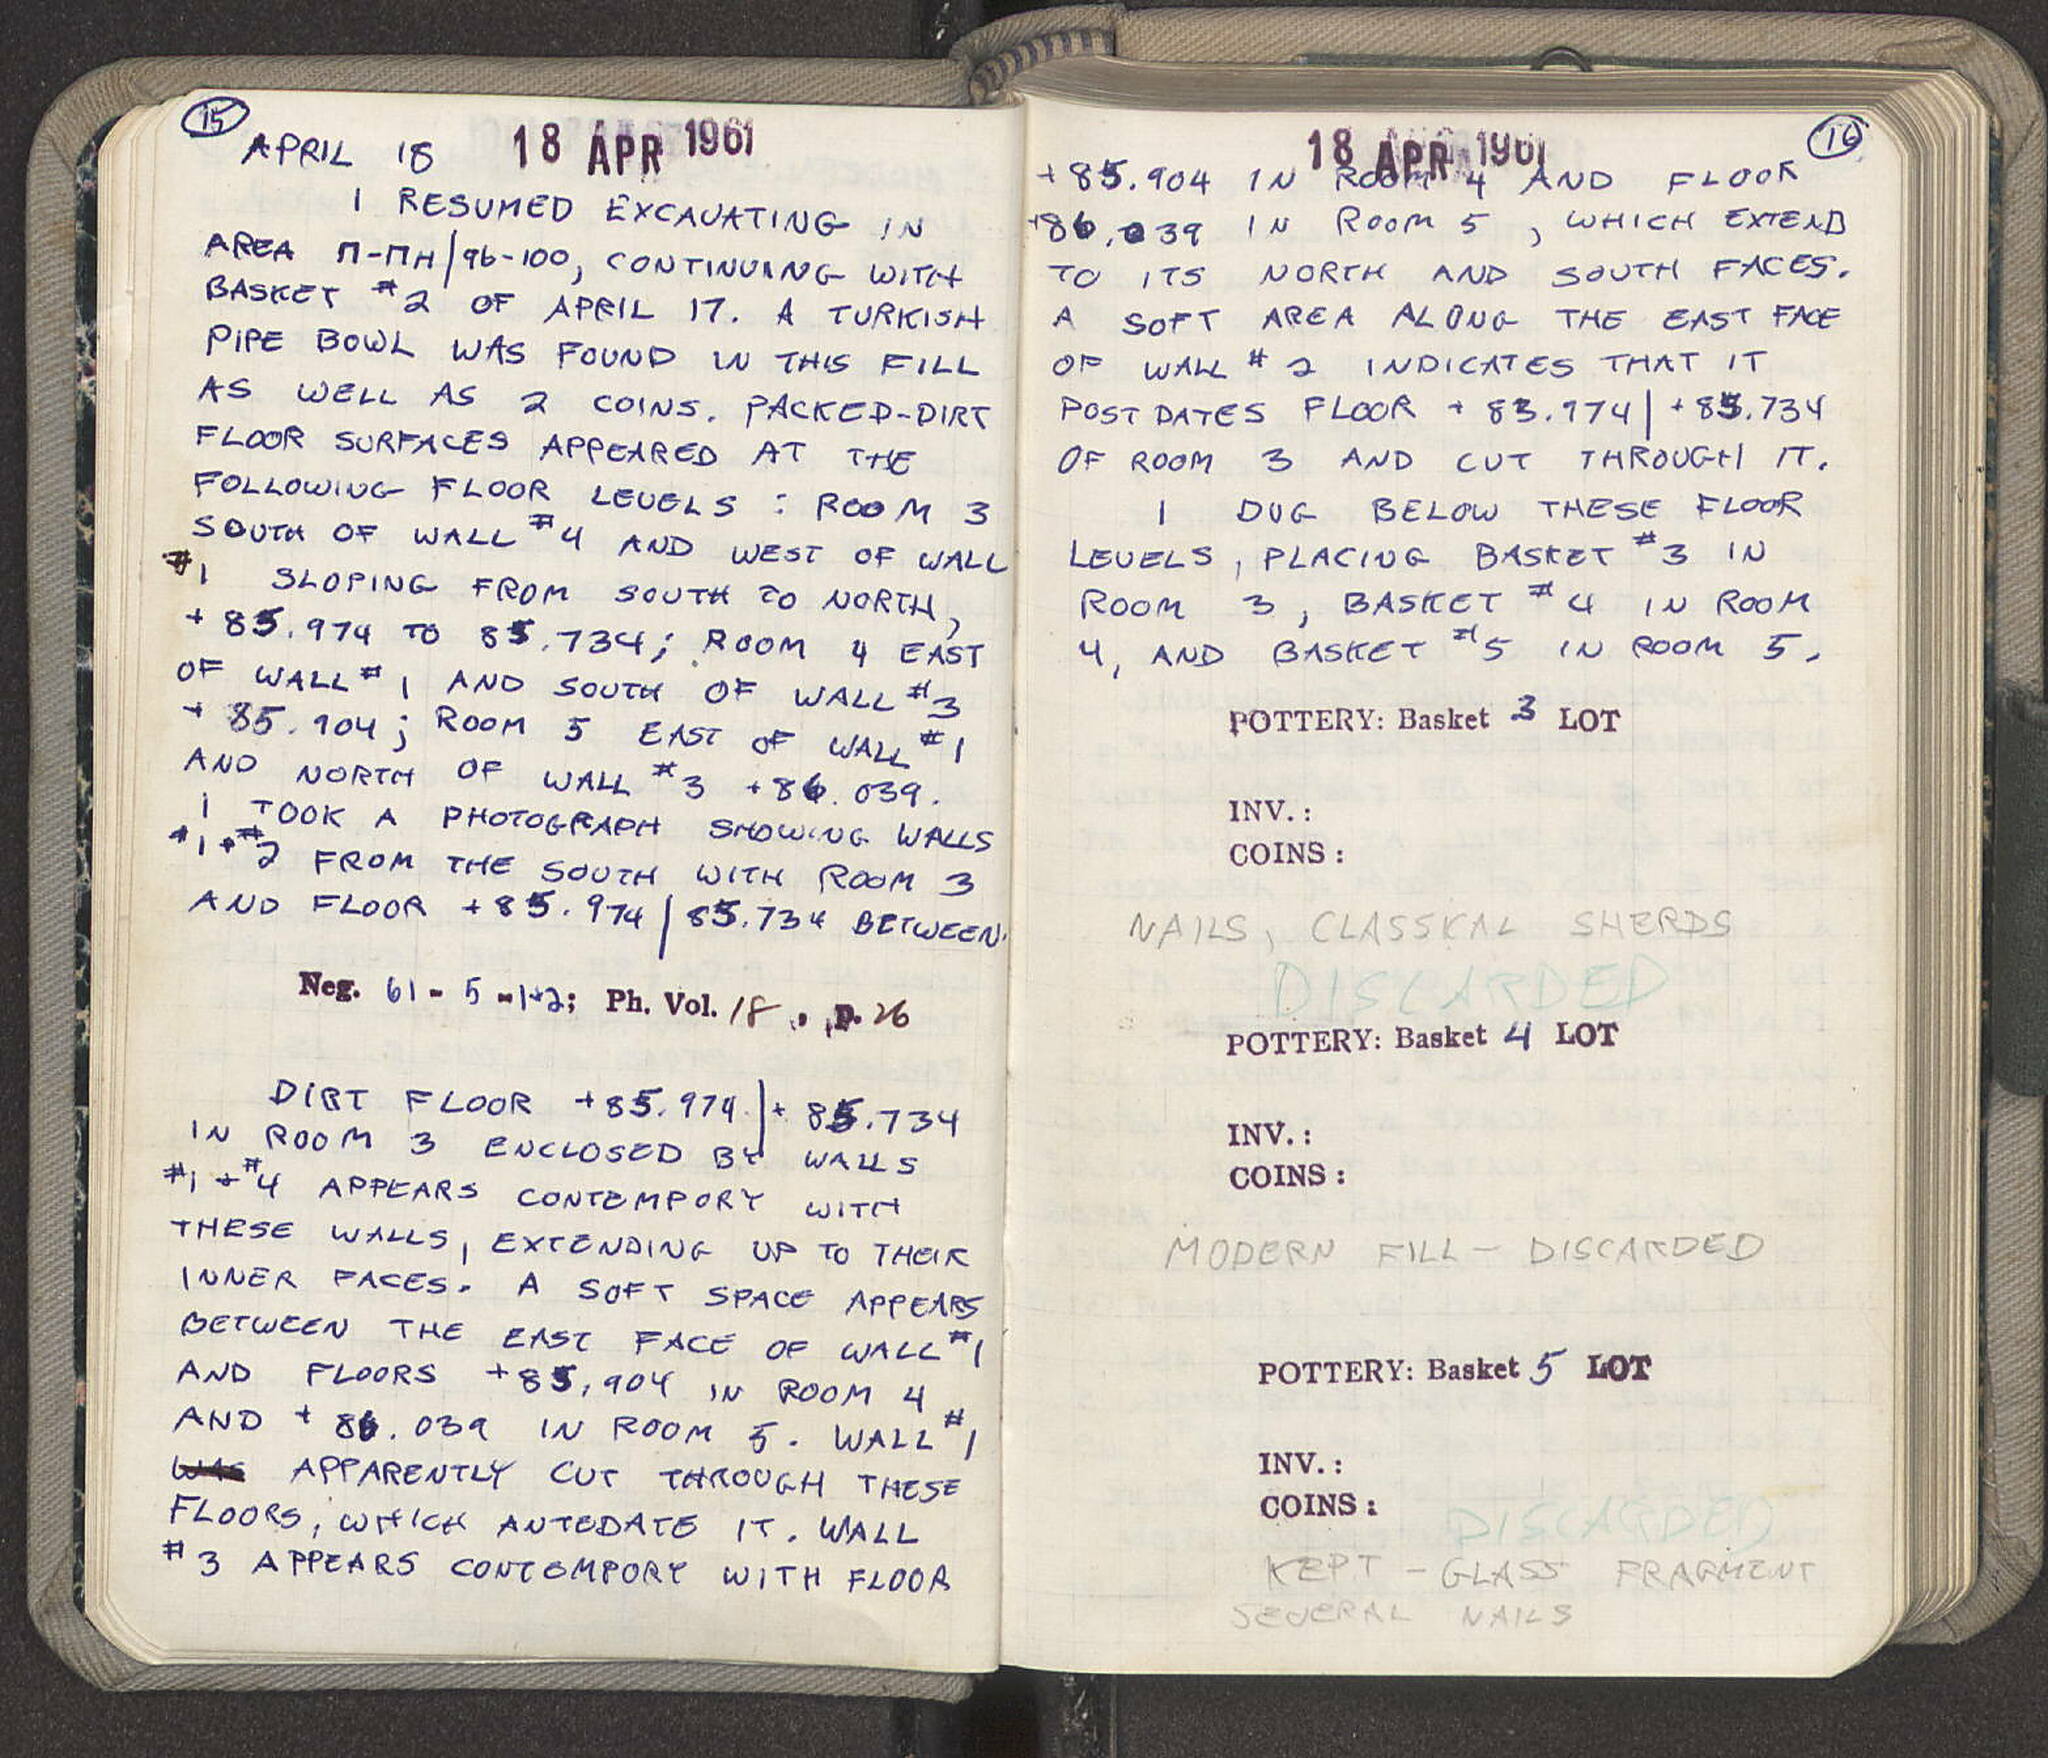 15
APRIL 18 18 APR 1961
I RESUMED EXCAVATING IN
AREA Π-ΠΗ/96-100, CONTINUING WITH
BASKET #2 OF APRIL 17. A TURKISH
PIPE BOWL WAS FOUND IN THIS FILL
AS WELL AS 2 COINS. PACKED-DIRT
FLOOR SURFACES APPEARED AT THE
FOLLOWING FLOOR LEVELS: ROOM 3
SOUTH OF WALL #4 AND WEST OF WALL
#1 SLOPING FROM SOUTH TO NORTH,
+85.974 TO 85.734; ROOM 4 EAST
OF WALL #1 AND SOUTH OF WALL #3
+85.904; ROOM 5 EAST OF WALL #1
AND NORTH OF WALL #3 +86.039.
I TOOK A PHOTOGRAPH SHOWING WALLS
#1+#2 FROM THE SOUTH WITH ROOM 3
AND FLOOR +85.974/85.734 BETWEEN.
Neg. 61-5-1+2; Ph. Vol. 18, p. 26
DIRT FLOOR +85.974/+85.734
IN ROOM 3 ENCLOSED BY WALLS
#1+#4 APPEARS CONTEMPORY WITH
THESE WALLS, EXTENDING UP TO THEIR
INNER FACES. A SOFT SPACE APPEARS
BETWEEN THE EAST FACE OF WALL #1
AND FLOORS +85.904 IN ROOM 4
AND +86.039 IN ROOM 5. WALL #1
WAS APPARENTLY CUT THROUGH THESE
FLOORS, WHICH ANTEDATE IT. WALL
#3 APPEARS CONTEMPORY WITH FLOOR
18 APR 1961 16
+85.904 IN ROOM 4 AND FLOOR
+86.039 IN ROOM 5, WHICH EXTEND
TO ITS NORTH AND SOUTH FACES.
A SOFT AREA ALONG THE EAST FACE
OF WALL #2 INDICATES THAT IT
POSTDATES FLOOR +85.974/+85.734
OF ROOM 3 AND CUT THROUGH IT.
I DUG BELOW THESE FLOOR
LEVELS, PLACING BASKET #3 IN
ROOM 3, BASKET #4 IN ROOM
4, AND BASKET #5 IN ROOM 5.
POTTERY: Basket 3 LOT
INV.:
COINS:
NAILS, CLASSICAL SHERDS
DISCARDED
POTTERY: Basket 4 LOT
INV.:
COINS:
MODERN FILL - DISCARDED
POTTERY: Basket 5 LOT
INV.:
COINS:
DISCARDED
KEPT - GLASS FRAGMENT
SEVERAL NAILS